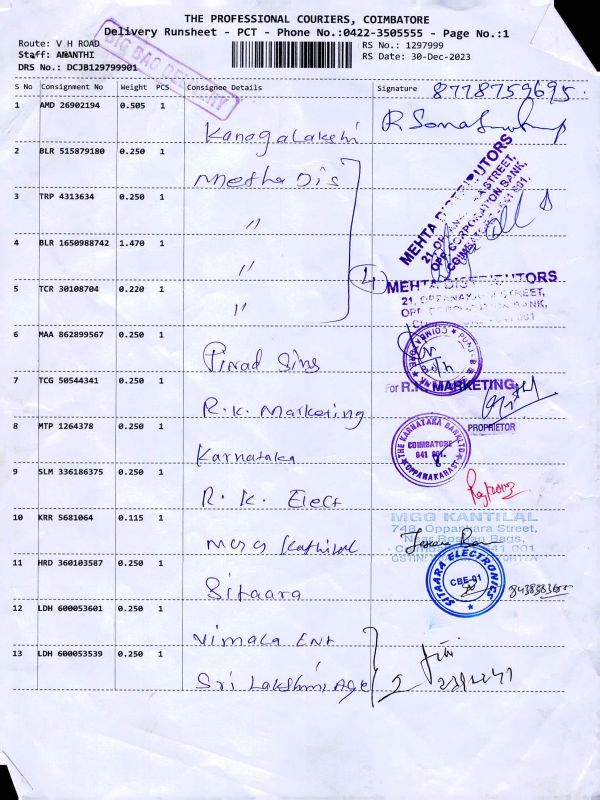 THE PROFESSIONAL COURIERS, COIMBATORE
Delivery Runsheet - PCT - Phone No.:0422-3505555 - Page No.:1
Route: V H ROAD
RS No.: 1297999
Staff: AMANTHI
RS Date: 30-Dec-2023
DRS No.: DCJB129799901
BIG BAG DELIVERY
S No Consignment No Weight PCS Consignee Details Signature
8778759695
1 AMD 26902194 0.505 1 Kanagalakshi
2 BLR 515879180 0.250 1 Metha Dis
MEHTA DISTRIBUTORS
21, OPPANAKARA STREET,
OPP. CORPORATION BANK,
COIMBATORE - 641 001.
3 TRP 4313634 0.250 1 "
4 BLR 1650988742 1.470 1 "
4
5 TCR 30108704 0.220 1 "
MEHTA DISTRIBUTORS
21, OPPANAKARA STREET,
OPP. CORPORATION BANK,
6 MAA 862899567 0.250 1
COIMBATORE
7 TCG 50544341 0.250 1 R.K. Marketing
For R.K. MARKETING
PROPRIETOR
8 MTP 1264378 0.250 1 Karnataka
THE KARNATAKA BANK LTD.
COIMBATORE
641 001.
9 SLM 336186375 0.250 1 R. K. Elect
10 KRR 5681064 0.115 1
MGG KANTILAL
748, Oppankara Street,
Near Roshan Bags,
Coimbatore - 641 001
11 HRD 360103587 0.250 1 Sitaara
SITAARA ELECTRONICS
CBE-01
12 LDH 600053601 0.250 1 Vimala Ent
13 LDH 600053539 0.250 1 Sri Lakshmi Age
2